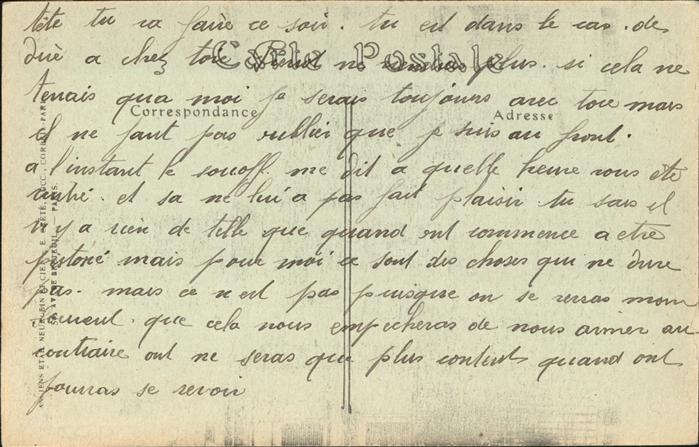 tête tu va faire ce soir. tu est dans le cas. des
dire a chez toie
Carte Postale
plus. si cela ne
tenais qua moi je serais toujours avec toie mais
Correspondance
Adresse
il ne faut pas oublier que je suis au front.
a l'instant le sousoff. me dit a quelle heure vous ete
rentré. et sa ne lui a pas fait plaisir tu sais il
n'y a rien de telle que quand ont commence a etre
mais pour moi ce sont des choses qui ne dure
pas. mais ce n'est pas puisque on se verras
que cela nous empecheras de nous aimer au
contraire ont ne seras que plus contents quand ont
pourras se revoir